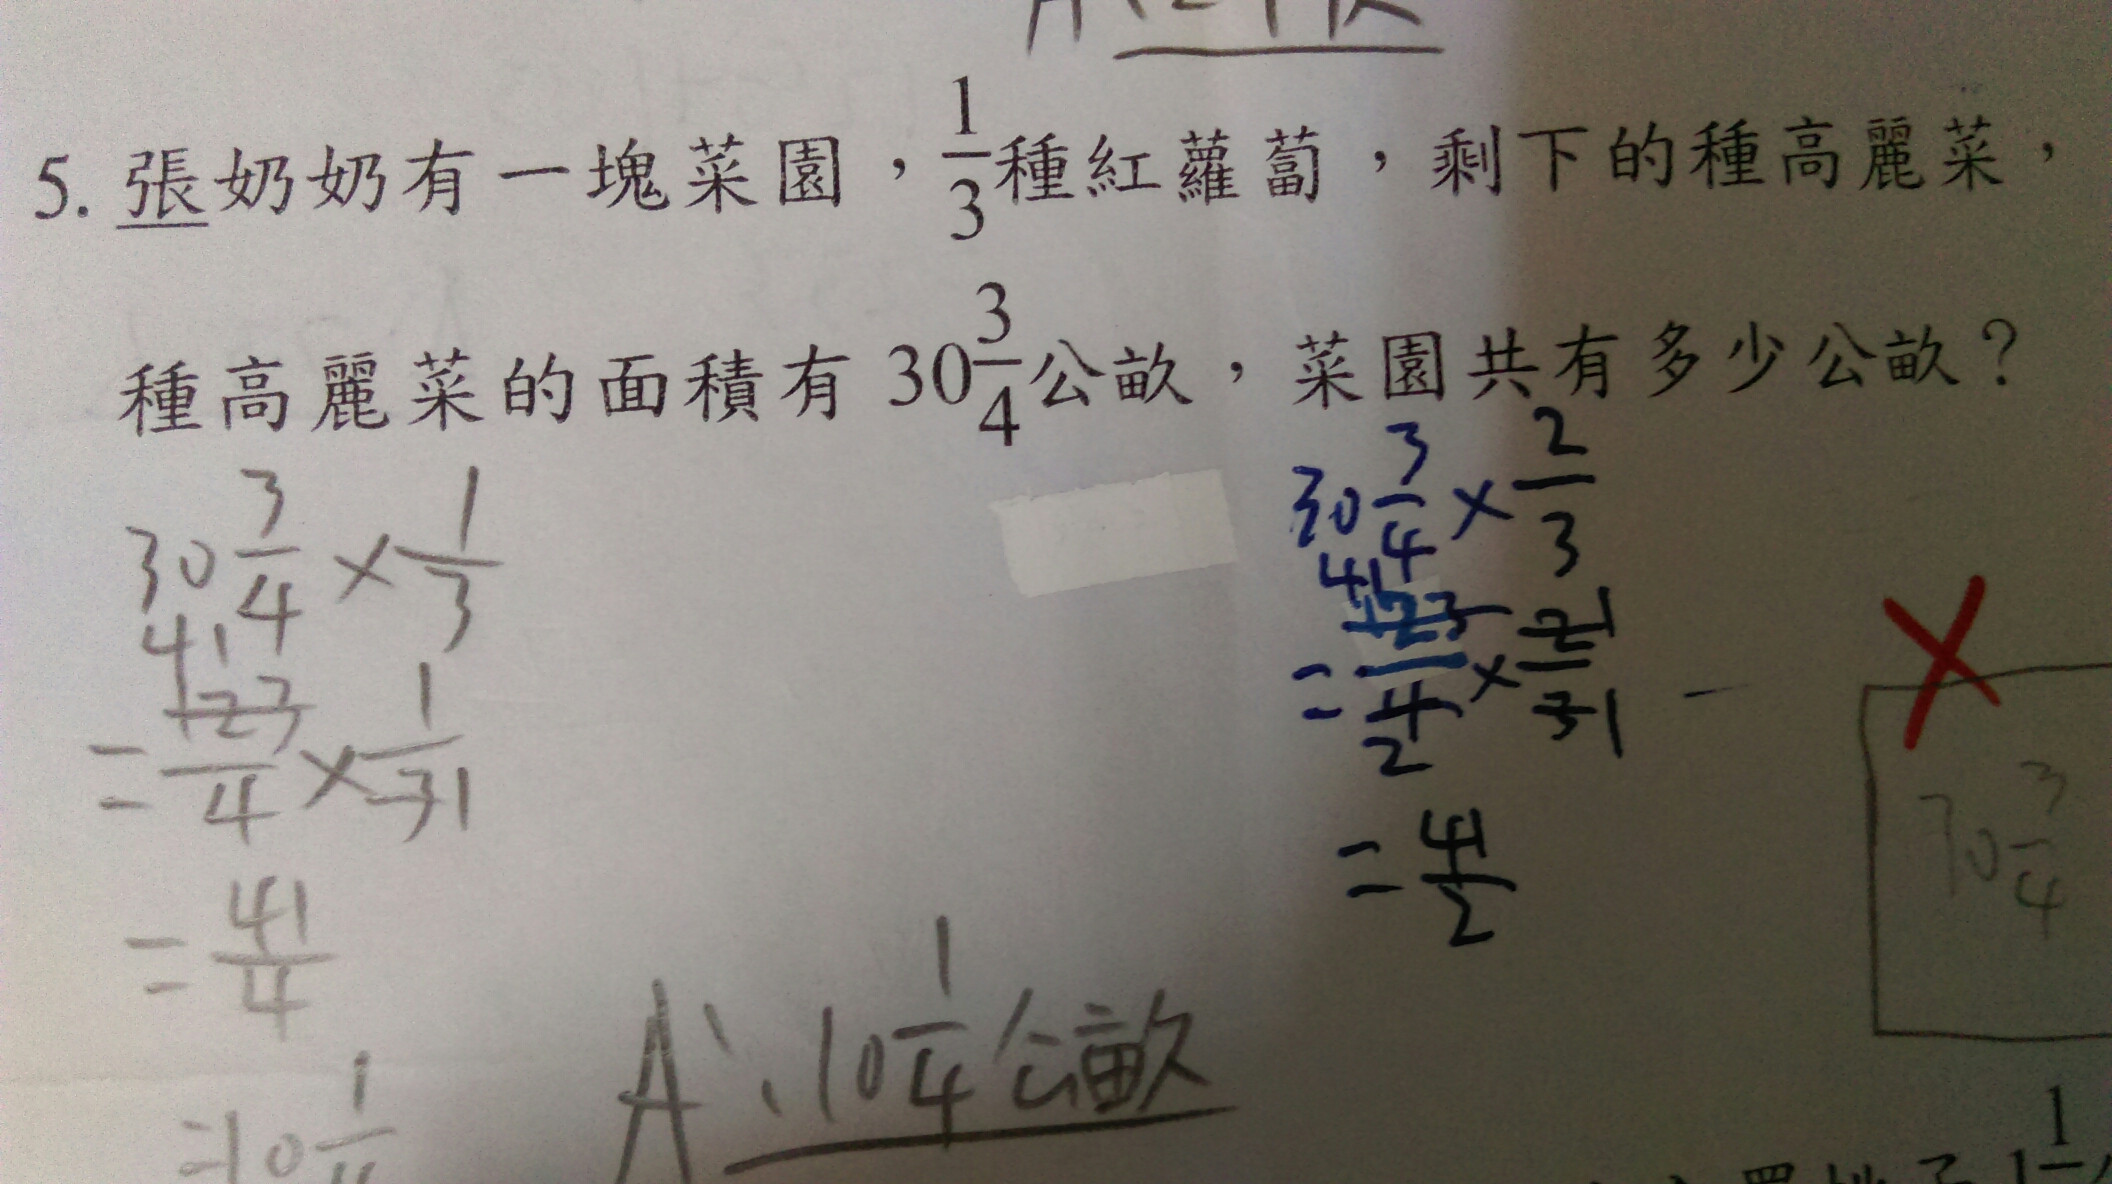 5. 張奶奶有一塊菜園，1/3種紅蘿蔔，剩下的種高麗菜，
種高麗菜的面積有 30 3/4公畝，菜園共有多少公畝？
30 3/4 × 1/3
= 123/4 × 1/3
41 1
= 41/4
=10 1/4
A：10 1/4 公畝
30 3/4 × 2/3
= 123/4 × 2/3
41 1
2 1
= 41/2
30 3/4
1 1/